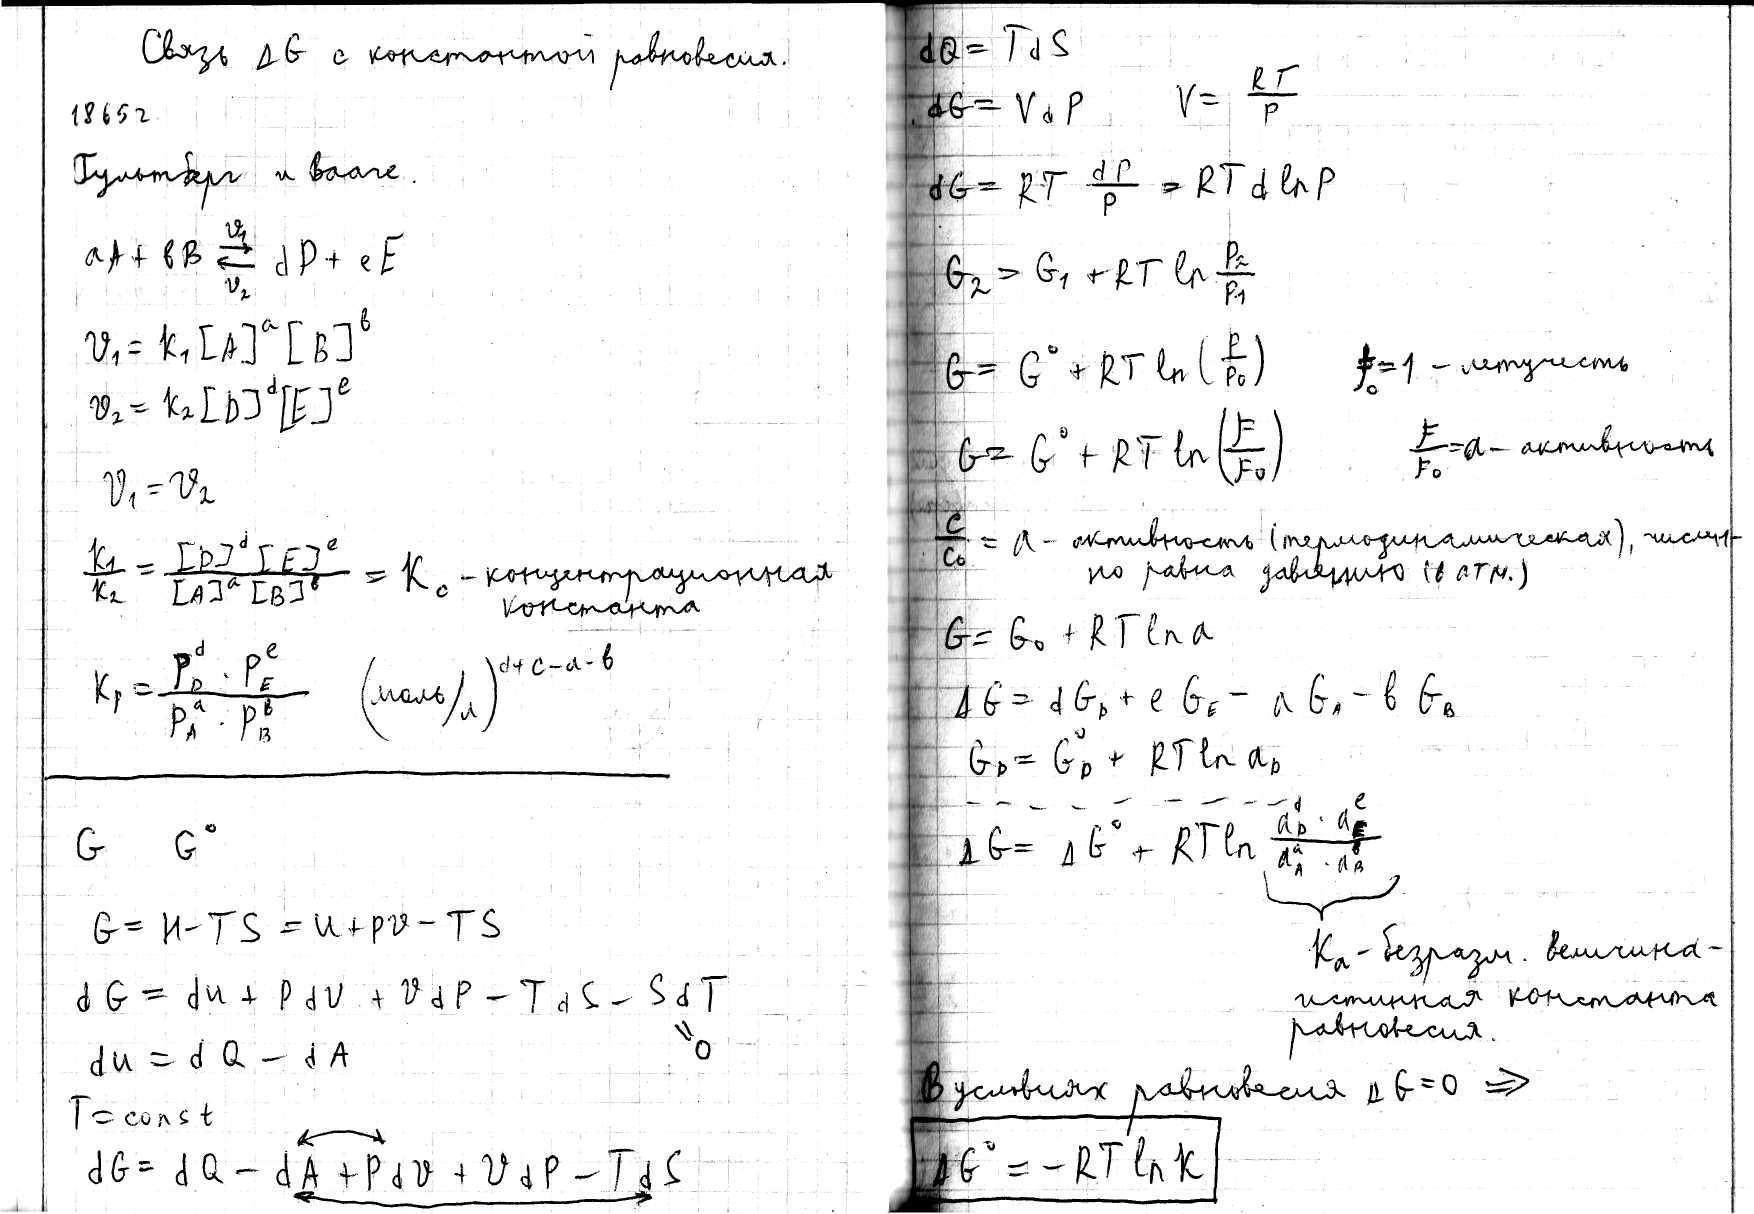 Связь ΔG с константой равновесия.
1865г
Гульдберг и Вааге.
aA + вB ⇄ dD + eE
v₁
v₂
v₁ = k₁[A]ᵃ[B]ᵇ
v₂ = k₂[D]ᵈ[E]ᵉ
v₁ = v₂
k₁/k₂ = [D]ᵈ[E]ᵉ / [A]ᵃ[B]ᵇ = K_c - концентрационная
константа
K_p = P_Dᵈ · P_Eᵉ / P_Aᵃ · P_Bᵇ (моль/л)^(d+c-a-b)
G G°
G = H - TS = u + pv - TS
dG = du + PdV + VdP - TdS - SdT
=0
du = dQ - dA
T = const
dG = dQ - dA + Pdv + VdP - TdS
dQ = TdS
dG = VdP V = RT/P
dG = RT dP/P = RT d lnP
G₂ = G₁ + RT ln P₂/P₁
G = G° + RT ln (P/P₀) f₀ = 1 - летучесть
G = G° + RT ln (F/F₀) F/F₀ = a - активность
C/C₀ = a - активность (термодинамическая), числен-
но равна давлению (в атм.)
G = G₀ + RT ln a
ΔG = dG_D + eG_E - aG_A - вG_B
G_D = G°_D + RT ln a_D
ΔG = ΔG° + RT ln a_Dᵈ · a_Eᵉ / a_Aᵃ · a_Bᵇ
K_a - безразм. величина -
истинная константа
равновесия.
В условиях равновесия ΔG = 0 ⇒
ΔG° = -RT ln K